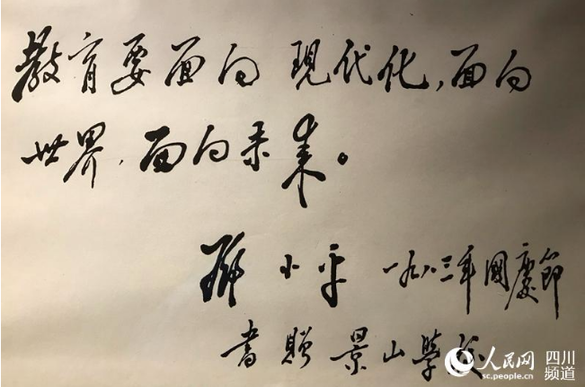 教育要面向 現代化，面向
世界，面向未来。
邓小平 一九八三年國慶節
書贈景山學校
人民网 四川频道
sc.people.cn